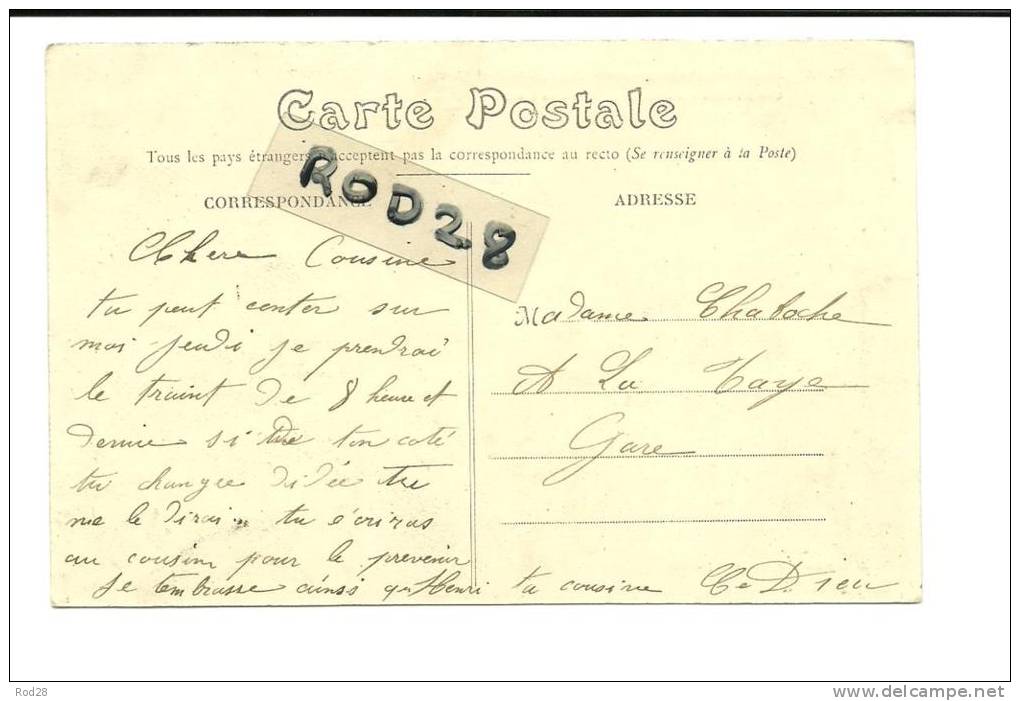 Carte Postale
Tous les pays étrangers n'acceptent pas la correspondance au recto (Se renseigner à la Poste)
CORRESPONDANCE
ROD28
Chere Cousine
tu peut conter sur
moi jeudi je prendrai
le traint de 8 heure et
demie si de ton coté
tu changee didée tu
me le dirai tu écriras
au cousin pour le prevenir
je tembrasse ainsi que Henri ta cousine C Dieu
ADRESSE
Madame Chaboche
A La Taye
Gare
Rod28
www.delcampe.net